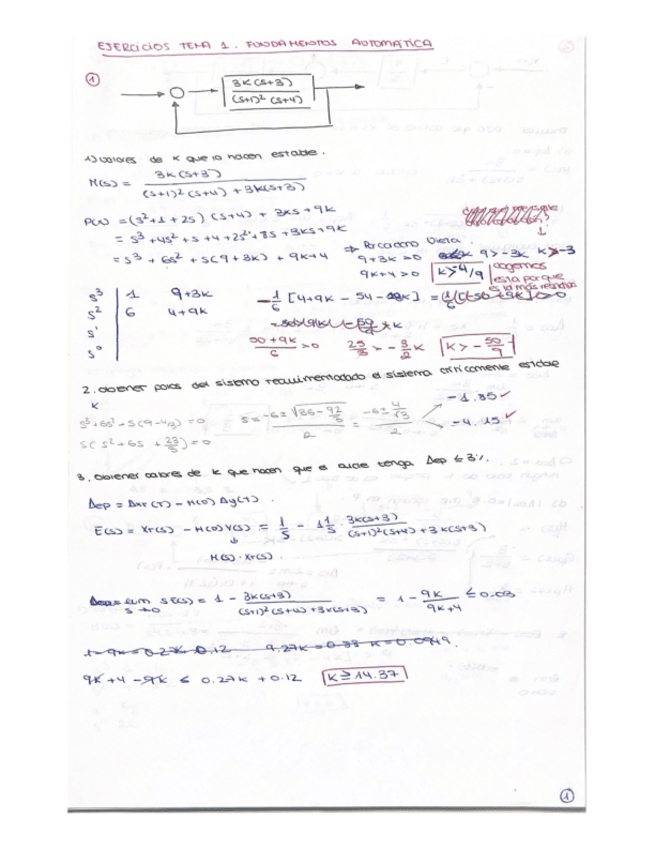 EJERCICIOS TEMA 1. FUNDAMENTOS AUTOMATICA
1
3K(S+3)
(S+1)² (S+4)
1) valores de K que lo hacen estable.
M(s) = 3K(S+3) / (S+1)²(S+4) + 3K(S+3)
P(s) = (S²+1+2S) (S+4) + 3KS + 9K
= S³ + 4S² + S + 4 + 2S² + 8S + 3KS + 9K
= S³ + 6S² + S(9+3K) + 9K+4
9+3K >0 9>-3K K>-3
9K+4 >0 K>4/9
cogemos
esta porque
es la más
S³ 1 9+3K
S² 6 4+9K
S¹
S⁰
50+9K / 6 >0 K > -50/9
2. obtener polos del sistema realimentado el sistema críticamente estable
K
S³+6S²+S(9-4/3)=0
S(S²+6S+23/3)=0
-1.85 ✓
-4.15 ✓
3. obtener valores de K que hacen que el tenga Δep ≤ 3%.
Δep = Δxr(T) - M(0) Δy(T).
E(s) = Xr(s) - M(0)Y(s) = 1/S - 1 1/S · 3K(S+3) / (S+1)²(S+4)+3K(S+3)
M(s)·Xr(s).
S→0 S E(s) = 1 - 3K(S+3) / (S+1)²(S+4)+3K(S+3) = 1 - 9K / 9K+4 ≤ 0.03
9.27K = 0.38 K = 0.0949.
9K+4-9K ≤ 0.27K + 0.12 K ≥ 14.37
1